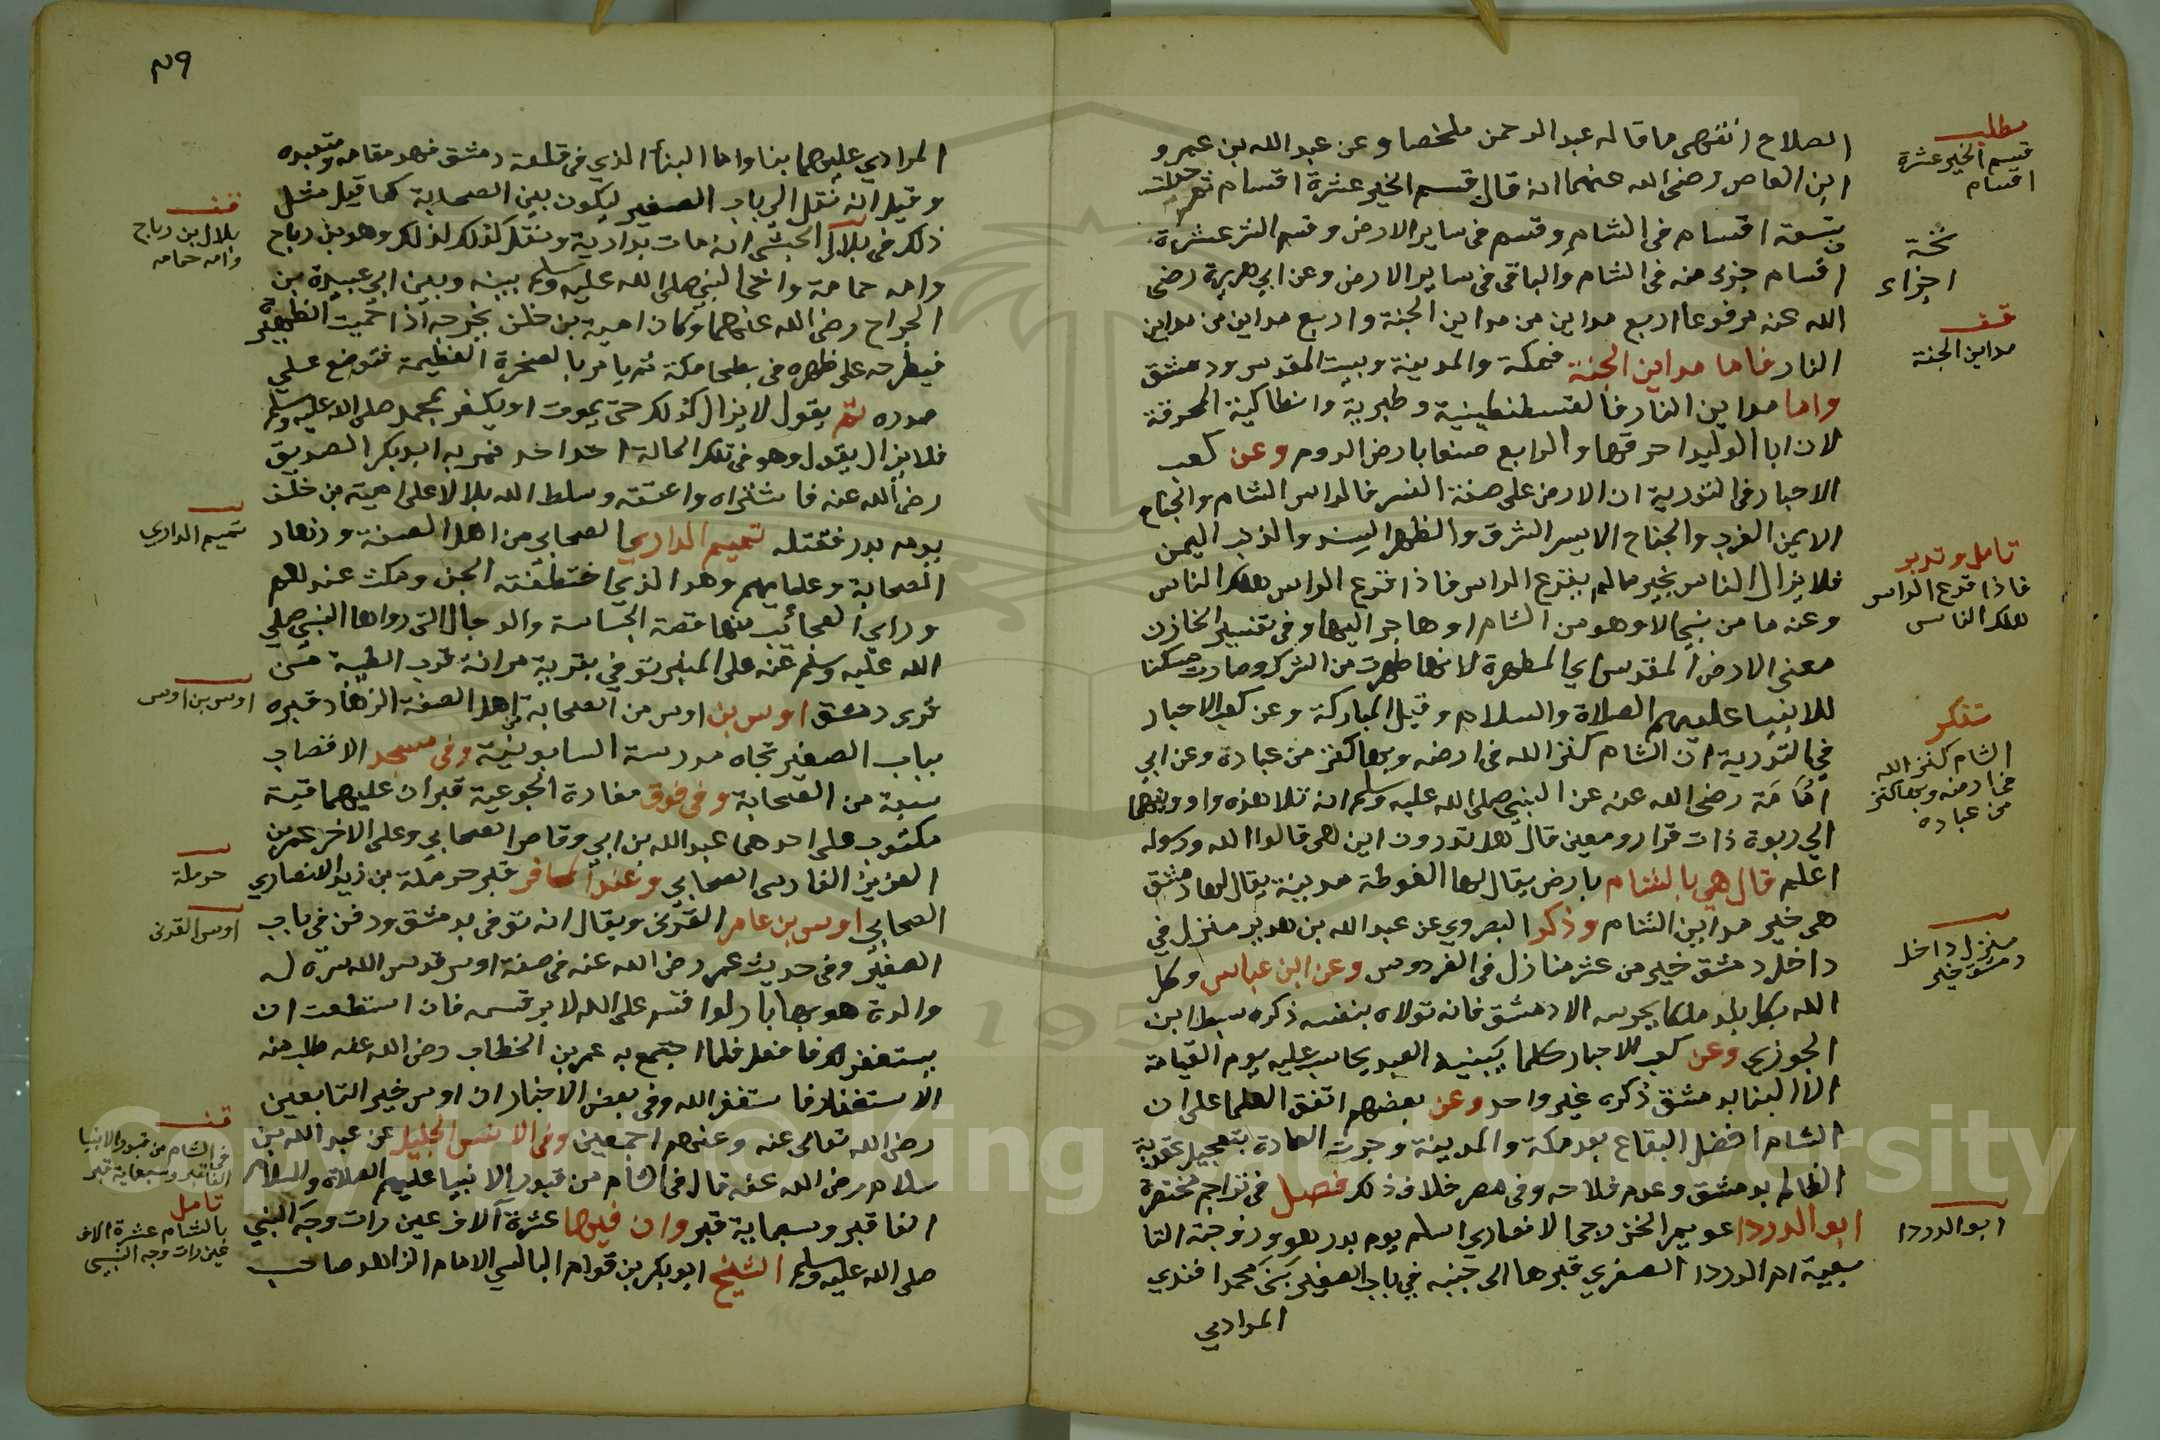 الصلاح انتهى ما قاله عبد الرحمن ملخصا وعن عبد الله بن عمرو
ابن العاص رضى الله عنهما انه قال قسم الخير عشرة اقسام
تسعة اقسام فى الشام وقسم فى ساير الارض وقسم الشر عشرة
اقسام جزء منه فى الشام والباقى فى ساير الارض وعن ابي هريرة رضى
الله عنه مرفوعا اربع مداين من مداين الجنة واربع مداين من مداين
النار فاما مداين الجنة فمكة والمدينة وبيت المقدس ودمشق
واما مداين النار فالقسطنطينية وطبرية وانطاكية المحرقة
لان ابا الوليد احرقها والرابع صنعا بارض الروم وعن كعب
الاحبار فى التورية ان الارض على صفة النسر فالراس الشام والجناح
الايمن الغرب والجناح الايسر الشرق والظهر السند والذنب اليمن
فلا يزال الناس بخير مالم يقرع الراس فاذا قرع الراس هلك الناس
وعنه ما من نبي الا وهو من الشام او هاجر اليها وفى تفسير الخازن
معنى الارض المقدس اي المطهرة لانها طهرت من الشرك وصارت مسكنا
للانبيا عليهم الصلاة والسلام وقيل المباركة وعن كعب الاحبار
في التورية ان الشام كنز الله فى ارضه وبها كنز من عباده وعن ابي
امامة رضى الله عنه عن النبي صلى الله عليه وسلم انه تلا هذه واويناهما
الى ربوة ذات قرار ومعين قال هل تدرون اين هى قالوا الله ورسوله
اعلم قال هي بالشام بارض يقال لها الغوطة مدينة يقال لها دمشق
هى خير مداين الشام وذكر البصروي عن عبد الله بن هدير منزل في
داخل دمشق خير من عشر منازل فى الفردوس وعن ابن عباس وكل
الله بكل بلد ملكا يحرسه الا دمشق فانه تولاه بنفسه ذكره سبط ابن
الجوزى وعن كعب الاحبار كلما يبنيه العبد يحاسب عليه يوم القيامة
الا البنا بدمشق ذكره غير واحد وعن بعضهم اتفق العلما على ان
الشام افضل البقاع بعد مكة والمدينة وجرت العادة بتعجيل عقوبة
الظالم بدمشق وعدم فلاحه وفى مصر خلاف ذلك فصل فى تراجم مختصرة
ابو الدردا عويمر الخزرجى الانصاري اسلم يوم بدر هو وزوجته التا
بعية ام الدردا الصغرى قبرها الى جنبه في باب الصغير بنى محمد افندي
المرادي
مطلب
قسم الخير عشرة
اقسام
نخة
اجزاء
قف
مداين الجنة
تامل وتدبر
فاذا قرع الراس
هلك الناس
تفكر
الشام كنز الله
فى ارضه وبها كنز
من عباده
منزل داخل
دمشق خير
ابو الدردا
٢٩
المرادي عليهما بنا واما البنا الذي فى قلعة دمشق فهو مقامه ومتعبده
وقيل انه نقل الى باب الصغير ليكون بين الصحابة كما قيل مثل
ذلك فى بلال الحبشى انه مات بدارية ونقل كذلك لذلك وهو بن رباح
وامه حمامة واخى النبي صلى الله عليه وسلم بينه وبين ابي عبيدة بن
الجراح رضى الله عنهما وكان امية بن خلف يخرجه اذا حميت الظهيرة
فيطرحه على ظهره فى بطحا مكة ثم يامر بالصخرة العظيمة فتوضع على
صدره ثم يقول لا يزال كذلك حتى يموت او يكفر بمحمد صلى الله عليه وسلم
فلا يزال يقول وهو فى تلك الحالة احد احد فمر به ابو بكر الصديق
رضى الله عنه فاشتراه واعتقه وسلط الله بلالا على امية بن خلف
يوم بدر فقتله تميم الداري الصحابي من اهل الصفة وزهاد
الصحابة وعلمايهم وهو الذي اختطفته الجن ومكث عندهم
وراى العجائب منها قصة الجساسة والدجال التى رواها النبي صلى
الله عليه وسلم عنه على المنبر توفى بقرية مرانة قرب الطيبة من
قرى دمشق اوس بن اوس من الصحابة من اهل الصفة الزهاد قبره
بباب الصغير تجاه مدرسة السابونية وفى مسجد الاقصاب
سبعة من الصحابة وفى فوق مغارة الجوعية قبران عليهما قبة
مكتوب على احدهما عبد الله بن ابى وقاص الصحابي وعلى الاخر عمر بن
العزيز الفارسى الصحابي وعند قبر حرملة بن زيد الانصاري
الصحابي اوس بن عامر القرنى ويقال انه توفى بدمشق ودفن فى باب
الصغير وفى حديث عمر رضى الله عنه فى صفة اوس قدس الله سره له
والدة هو بها بار لو اقسم على الله لابر قسمه فان استطعت ان
يستغفر لك فافعل فلما اجتمع به عمر بن الخطاب رضى الله عنه طلب منه
الاستغفار فاستغفر الله وفى بعض الاخبار ان اوس خير التابعين
رضى الله تعالى عنه وعنهم اجمعين وفى الانس الجليل عن عبد الله بن
سلام رضى الله عنه قال فى الشام من قبور الانبيا عليهم الصلاة والسلام
الفا قبر وسبعماية قبر وان فيها عشرة آلاف عين رات وجه النبي
صلى الله عليه وسلم الشيخ ابو بكر بن قوام البالسي الامام الزاهد صاحب
قف
بلال بن رباح
وامه حمامه
تميم الداري
اوس بن اوس
حرملة
اوس القرنى
قف
فى الشام من قبور الانبيا
الفا قبر وسبعماية قبر
تامل
بالشام عشرة الاف
عين رات وجه النبي
Copyright © King Saud University
1957